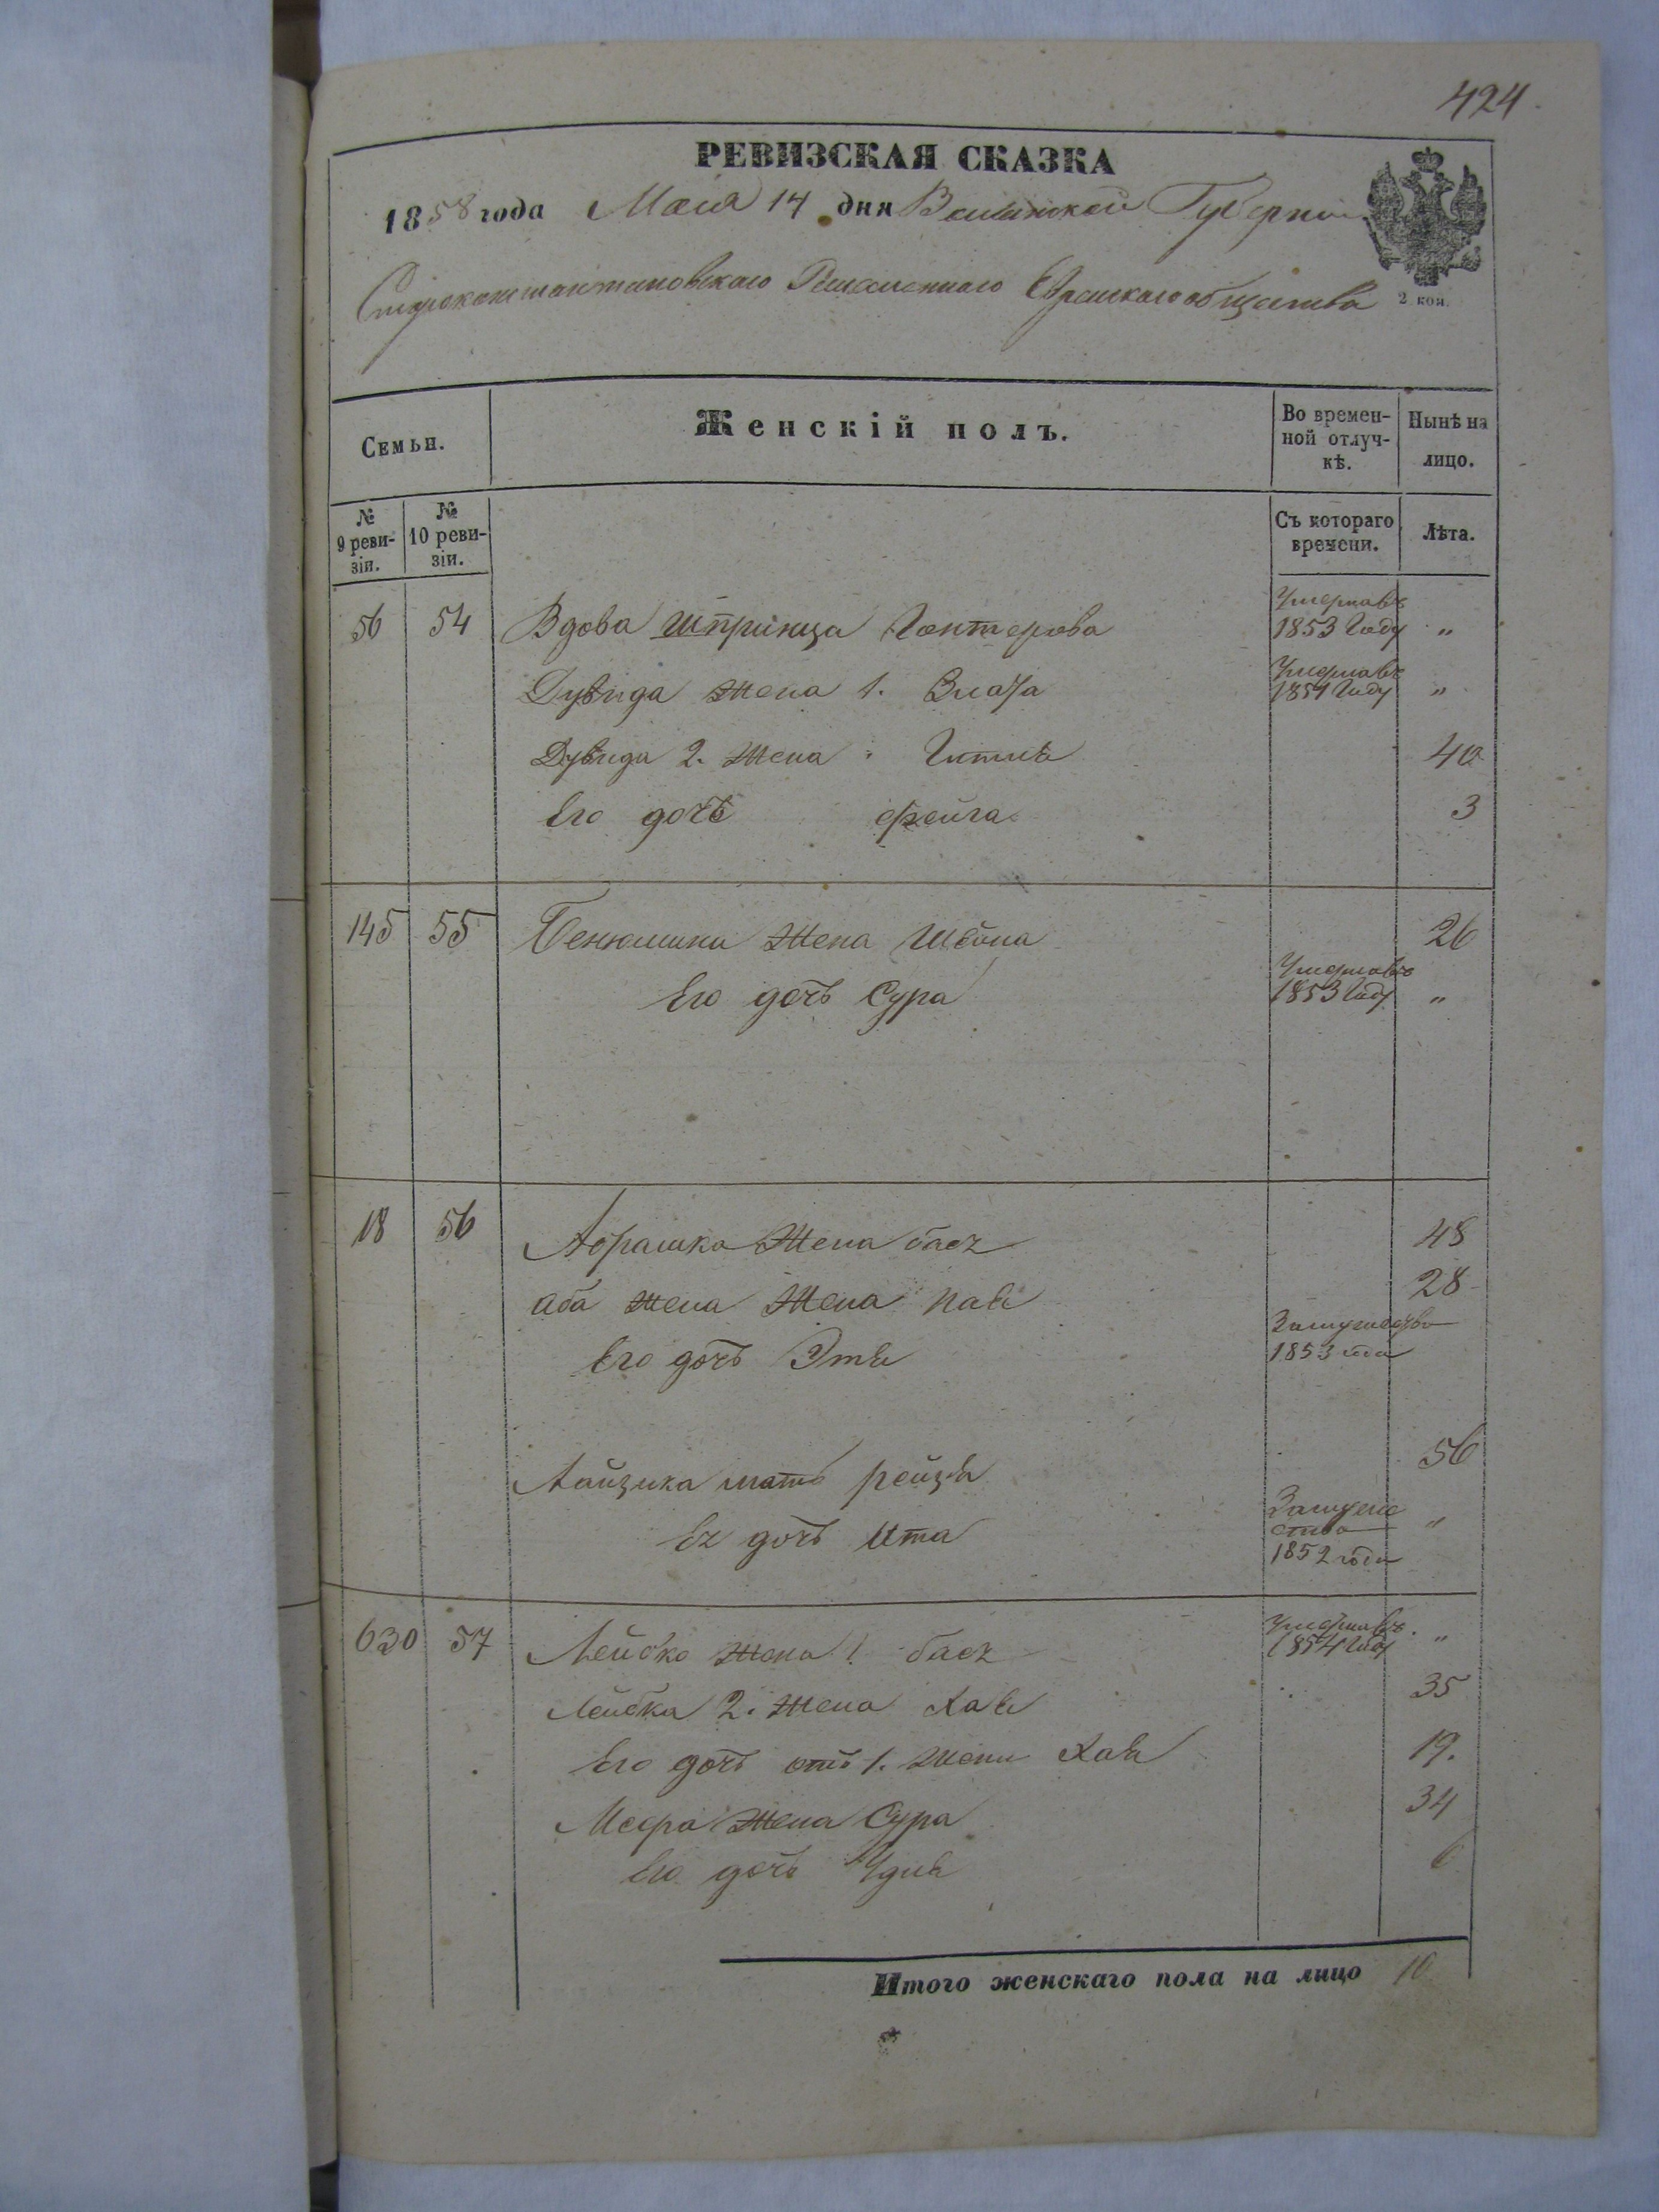 424
РЕВИЗСКАЯ СКАЗКА
1858 года Маия 14 дня Волынской Губернии
Староконстантиновскаго Еврейскаго общества
2 коп.
Семьи.
Женскій полъ.
Во времен-
ной отлуч-
кѣ.
Нынѣ на
лицо.
№
9 реви-
зіи.
№
10 реви-
зіи.
Съ котораго
времени.
Лѣта.
56 54 Вдова Шпринца Гонтерова Умерла въ 1853 Году „
Дувида жена 1. Злата Умерла въ 1854 Году „
Дувида 2. Жена Гитля 40
Его дочь фейга 3
145 55 Бенюмина Жена Шейна 26
Его дочь Сура Умерла въ 1853 Году „
18 56 Абрамка Жена бася 48
аба жена Жена 28
Его дочь Этя Замужество 1853 года
Айзика мать рейзя 56
Ея дочь Ита Замуже ство 1852 года „
630 57 Лейбко жена 1 бася Умерла въ 1854 Году „
Лейбка 2. жена Хая 35
Его дочь отъ 1. жени Хая 19.
Меера жена Сура 34
Его дочь Удля 6
Итого женскаго пола на лицо 10